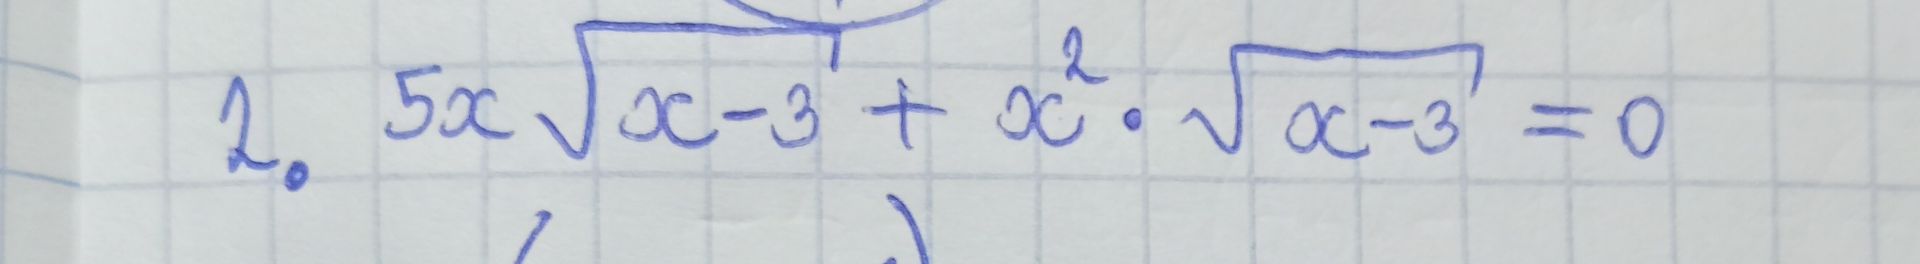 2. 5x√(x-3) + x² · √(x-3) = 0